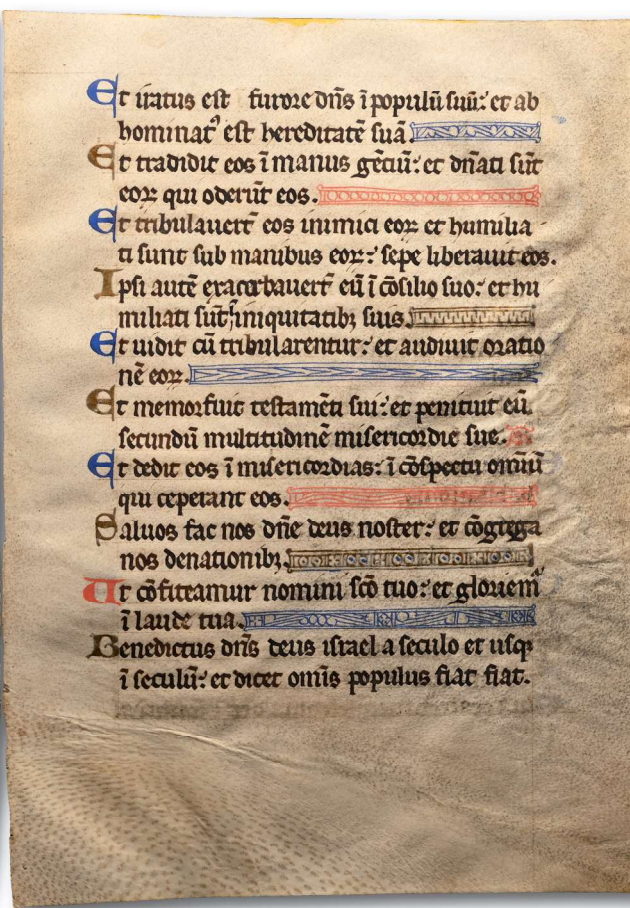 Et iratus est furore dn̄s ī populū suū: et ab
hominat᷒ est hereditatē suā.
Et tradidit eos ī manus gētiū: et dn̄ati sūt
eoꝝ qui oderūt eos.
Et tribulauert̄ eos inimici eoꝝ et humilia
ti sunt sub manibus eoꝝ: sepe liberauit eos.
Ipsi autē exacerbauert̄ eū ī cōsilio suo: et hu
miliati sūt ī iniquitatibꝫ suis.
Et uidit cū tribularentur: et audiuit oratio
nē eoꝝ.
Et memor fuit testamēti sui: et penituit eū
secundū multitudinē misericordie sue.
Et dedit eos ī misericordias: ī cōspectu omīū
qui ceperant eos.
Saluos fac nos dn̄e deus noster: et cōgrega
nos de nationibꝫ.
Ut cōfiteamur nomini sc̄o tuo: et gloriem᷒
ī laude tua.
Benedictus dn̄s deus israel a seculo et usqꝫ
ī seculū: et dicet omīs populus fiat fiat.